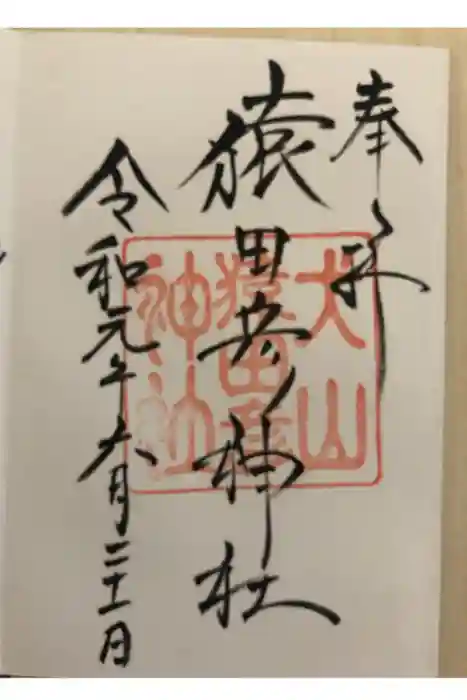 奉拝
猿田彦神社
令和元年六月二十一日
犬山
猿田彦
神社